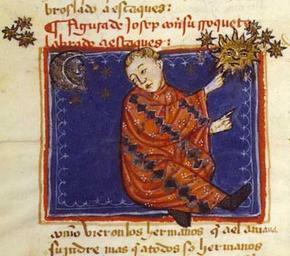 broslado a estaques:
¶ figura de Josep con su rroquete
labrado a estaques:
como vieron los hermanos q̃ a el amaua
su padre mas q̃ a todos sꝰ hermanos